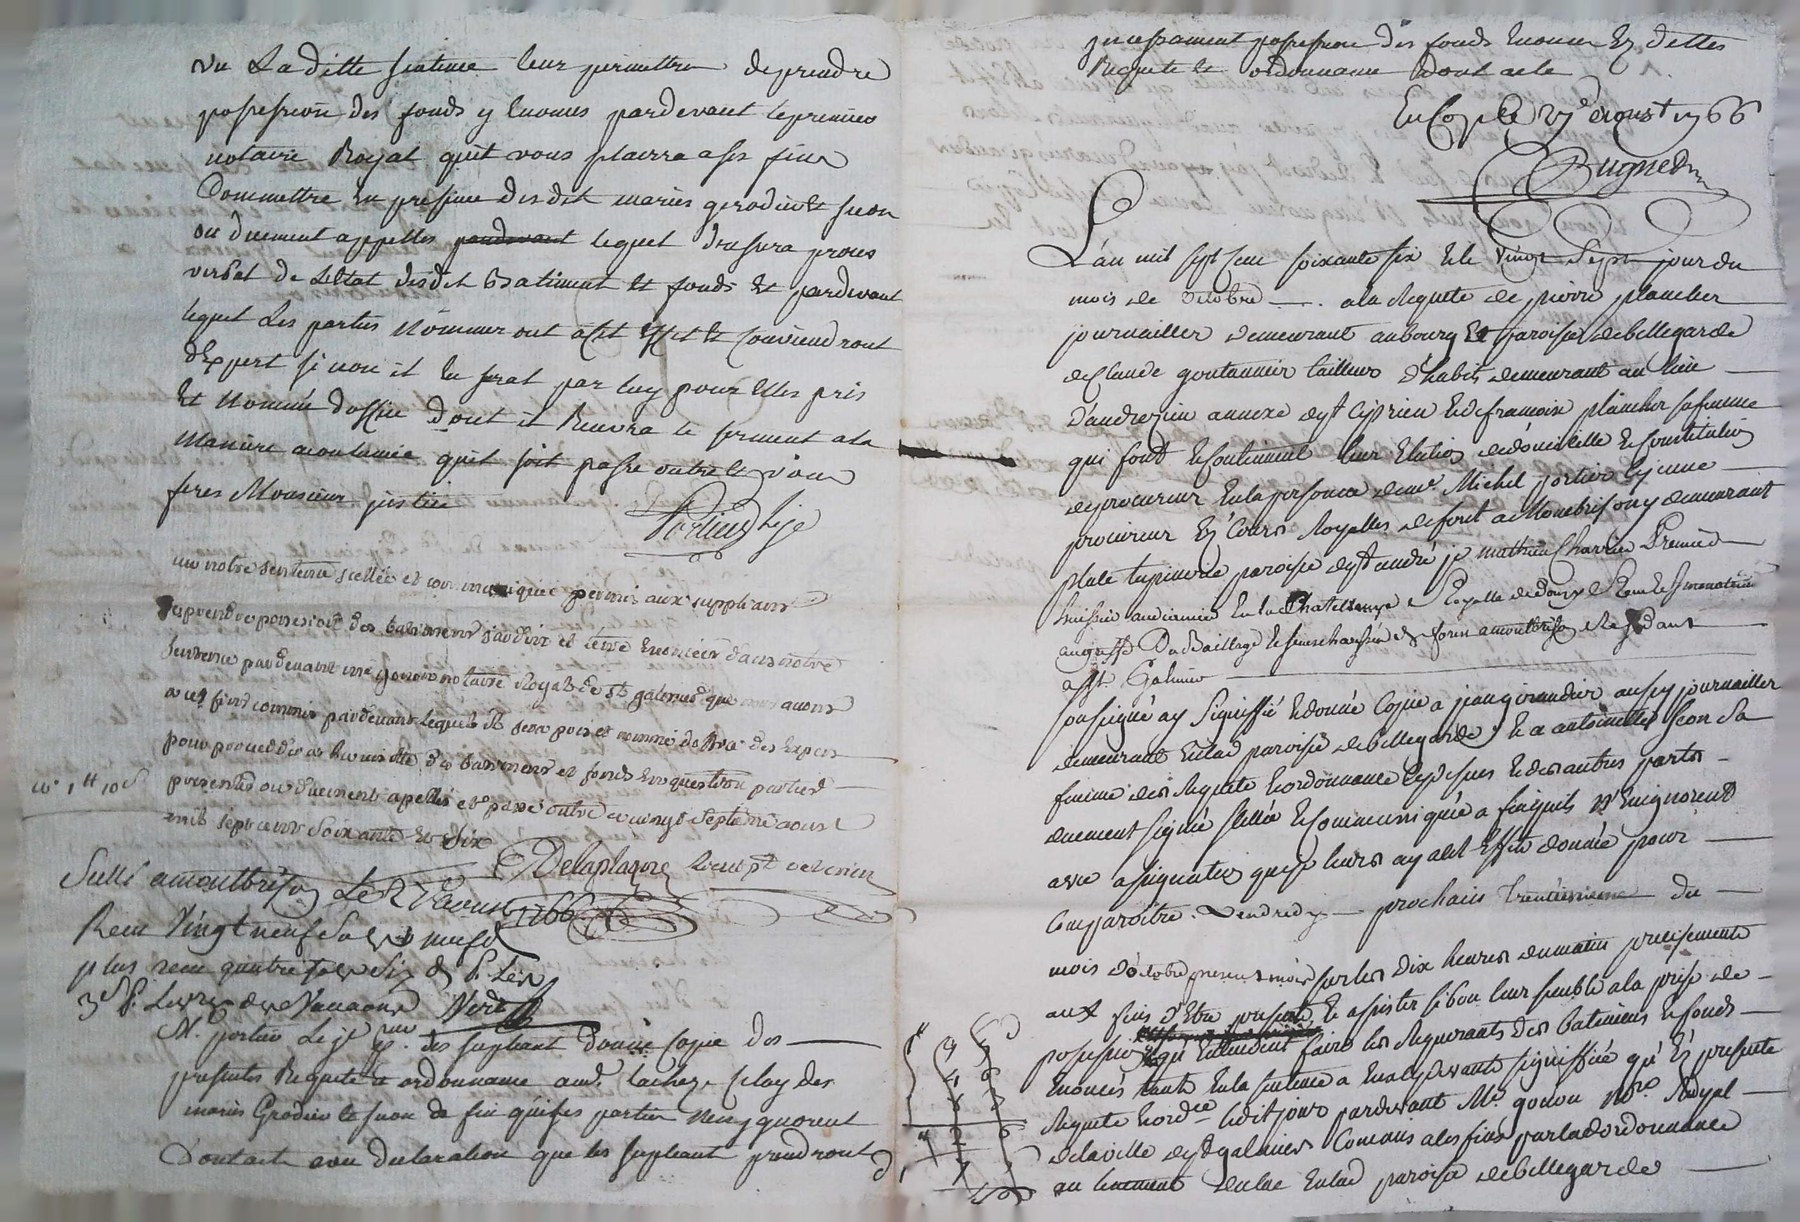 vu La ditte sentence leur permettre de prendre
possession des fonds y Enonces pardevant le premier
notaire Royal quil vous plairra a ses fins
Commettre En presence desdits mariés girodier et sion
ou Duement appelles pardevant lequel dressera proces
verbal de L'Etat desdit Batiment et fonds et pardevant
lequel Les parties Nommeront a cet Effet et Conviendront
d'Expert si non il En serat par luy pour Elles pris
Et Nommé d'office Dont il Recevra le serment a la
maniere accoutumée quil soit passé outre et vous
feres Monsieur justice
Portier Le je
vu notre sentence scellée et communiquée permis aux supplians
de prendre possession des batimens jardin et terre Enoncés dans notre
sentence pardevant me gonon notaire Royal de st galmier que nous avons
a ces fins commis pardevant lequel il sera pris et nommé d'office des Experts
pour proceder a la visitte des batimens et fonds En question parties
presentes ou duement apelleés et passé outre ce vingt septieme aoust
mil sept cent soixante et six
Delaplagne
Scellé a montbrison Le 27 aoust 1766
Recu Vingt neuf sols neuf d
plus recu quatre sols six d
M. portier Le je pr. des supliant donné copie des
presentes Requete et ordonnance aud. Lacheze celuy des
mariés Girodier et sion da fin quises parties N'en ignorent
Dont acte avec declaration que les supliant prendront
incessament possession des fonds Enonces Ez dittes
Requete et ordonnance dont acte
En Cop. le 27e aoust 1766
Bugnet
L'an mil sept cent soixante six et le vingt Sept jour du
mois de octobre a la Requete de pierre plancher
journaillier demeurant au bourg Et paroisse de bellegarde
de Claude goutannier tailleur d'habits demeurant au lieu
d'andrezieu annexe de st Ciprien et de francoise plancher sa femme
qui font et continuent leur Election de domicille et Constitution
de procureur En la personne de me Michel portier Le jeune
procureur Ez Cours Royalles de forest a Montbrison y demeurant
place tupinerie paroisse de st andré je mathieu Charrier Premier
huissier audiancier En la Chatellenye Royalle de donzy
au greffe Du Bailliage et senechaussée de forest a montbrison Residant
a st. Galmier
soussigné ay Signiffié et donné Copie a jean giraudier aussy journaillier
demeurant En lad paroisse de bellegarde et a antoinette Sion sa
femme des Requete et ordonnance Cy dessus et des autres parts
duement signée scellée et communiquée a fin quils N'En ignorent
avec assignation que je leurs ay a cet Effet donnée pour
Comparoitre vendredy prochain trentieme du
mois d'octobre present mois sur les dix heures du matin precisement
aux fins d'Etre present et assister si bon leur semble a la prise de
possession que Entendent faire les Requerants des Batiments et fonds
Enoncés tant En la sentence a Eux cy devant signiffiée qu'Ez presente
Requete et ordce ledit jour pardevant Me. gonon Nre. Royal
de la ville de st galmier Commis a ces fins par lad ordonnance
au tenement de En lad paroisse de bellegarde